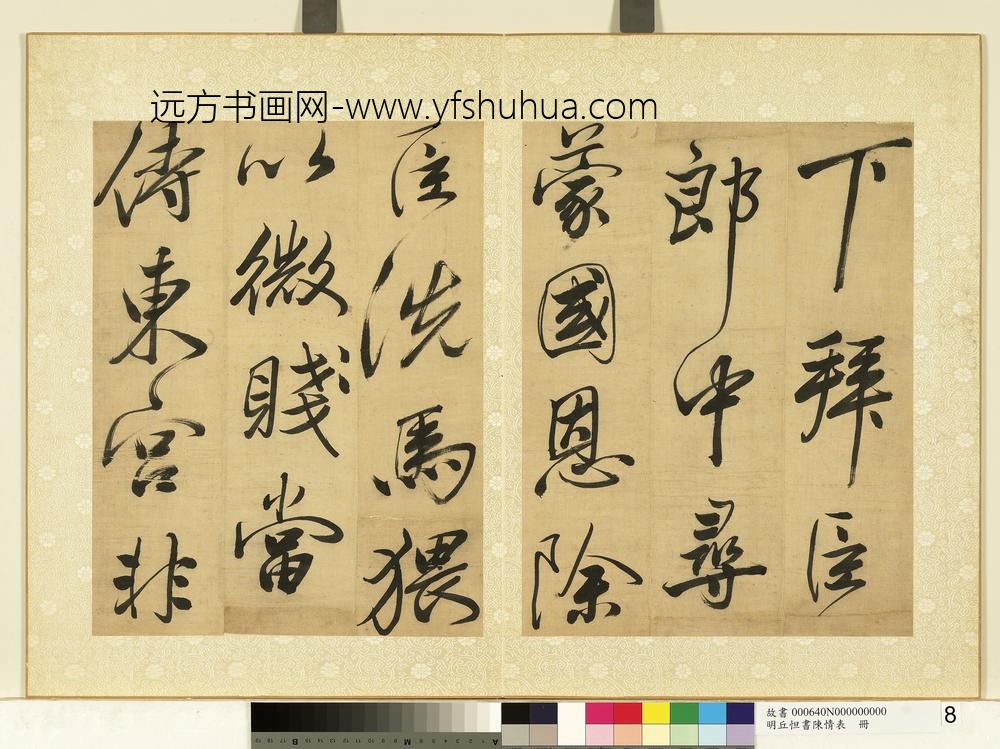 远方书画网-www.yfshuhua.com
下拜臣
郎中尋
蒙國恩除
臣洗馬猥
以微賤當
侍東宮非
故書 000640N000000000
明丘恒書陳情表 冊
8